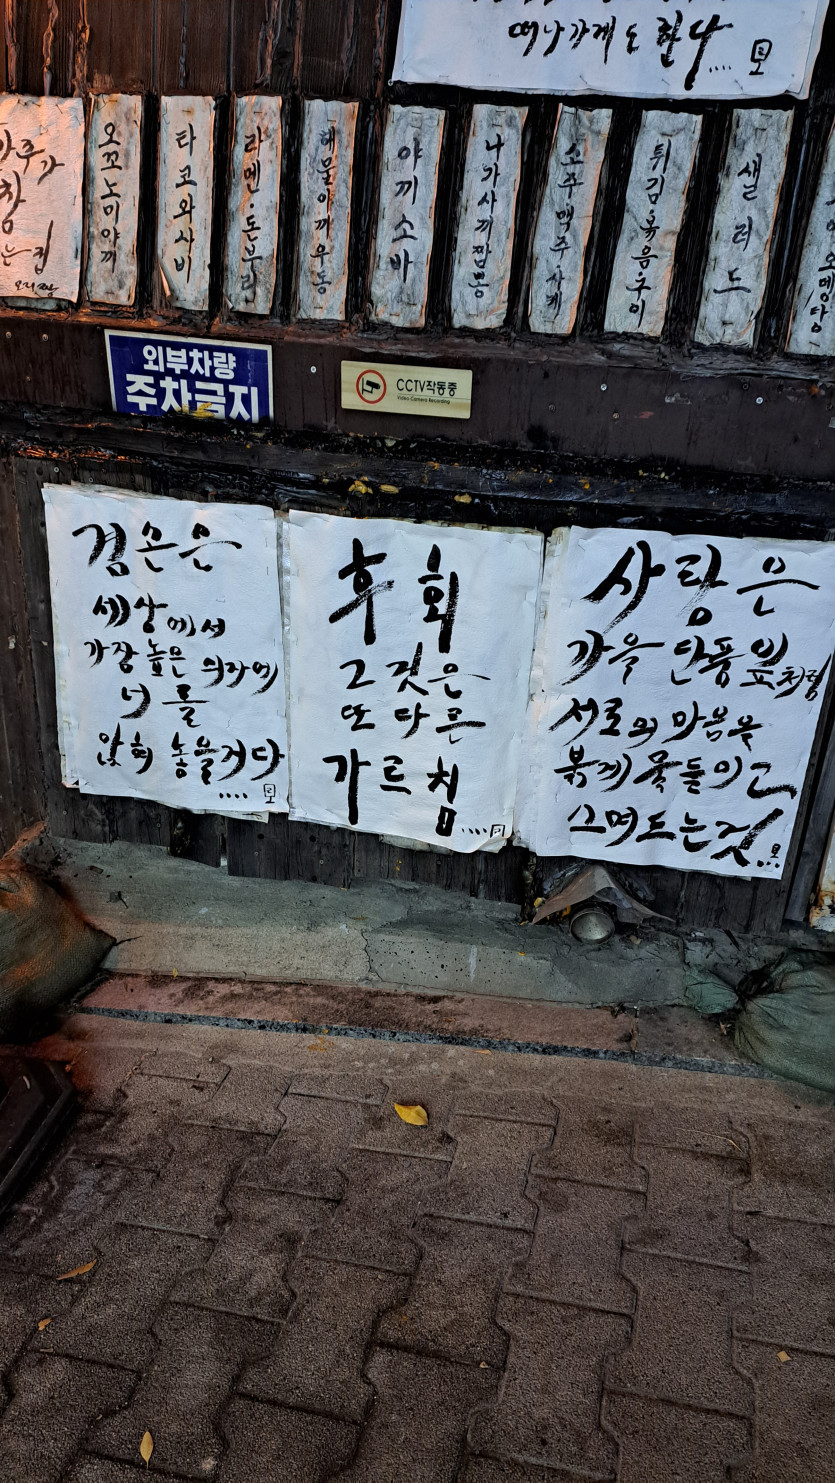 떠나가게도 한다....
오꼬노미야끼
타코와사비
라멘·돈부리
해물야끼우동
야끼소바
나가사끼짬뽕
소주맥주사케
튀김볶음구이
샐러드
오뎅탕
외부차량
주차금지
CCTV작동중
Video Camera Recording
겸손은
세상에서
가장 높은 의자에
너를
앉혀 놓을거다
....
후회
그것은
또 다른
가르침....
사랑은
가을 단풍잎처럼
서로의 마음을
붉게 물들이고
스며드는것...